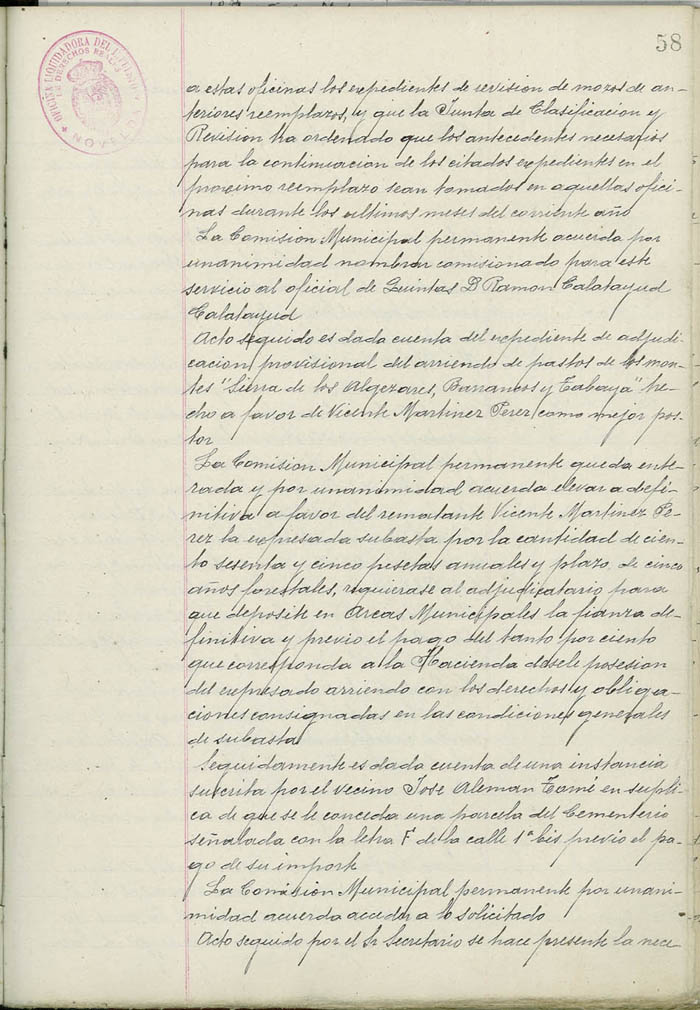 58
OFICINA LIQUIDADORA DEL
DERECHOS REALES
a estas oficinas los expedientes de revision de mozos de an-
teriores reemplazos, y que la Junta de Clasificacion y
Revision ha ordenado que los antecedentes necesarios
para la continuacion de los citados expedientes en el
proximo reemplazo sean tomados en aquellas ofici-
nas durante los ultimos meses del corriente año
La Comision Municipal permanente acuerda por
unanimidad nombrar comisionado para este
servicio al oficial de Quintas D Ramon Calatayud
Calatayud
Acto seguido es dada cuenta del expediente de adjudi-
cacion provisional del arriendo de pastos de los mon-
tes "Sierra de los Algezares, Barrancos y Tabayá" he-
cho a favor de Vicente Martinez Perez como mejor pos-
tor
La Comision Municipal permanente queda ente-
rada y por unanimidad acuerda elevar a defi-
nitiva a favor del rematante Vicente Martinez Pe-
rez la expresada subasta por la cantidad de cien-
to sesenta y cinco pesetas anuales y plazo de cinco
años forestales, requierase al adjudicatario para
que deposite en Arcas Municipales la fianza de-
finitiva y previo el pago del tanto por ciento
que corresponda a la Hacienda desele posesion
del expresado arriendo con los derechos y obliga-
ciones consignadas en las condiciones generales
de subasta
Seguidamente es dada cuenta de una instancia
suscrita por el vecino Jose Aleman Tomé en supli-
ca de que se le conceda una parcela del Cementerio
señalada con la letra F de la calle 1ª bis previo el pa-
go de su importe
La Comision Municipal permanente por unani-
midad acuerda acceder a lo solicitado
Acto seguido por el Sr Secretario se hace presente la nece-